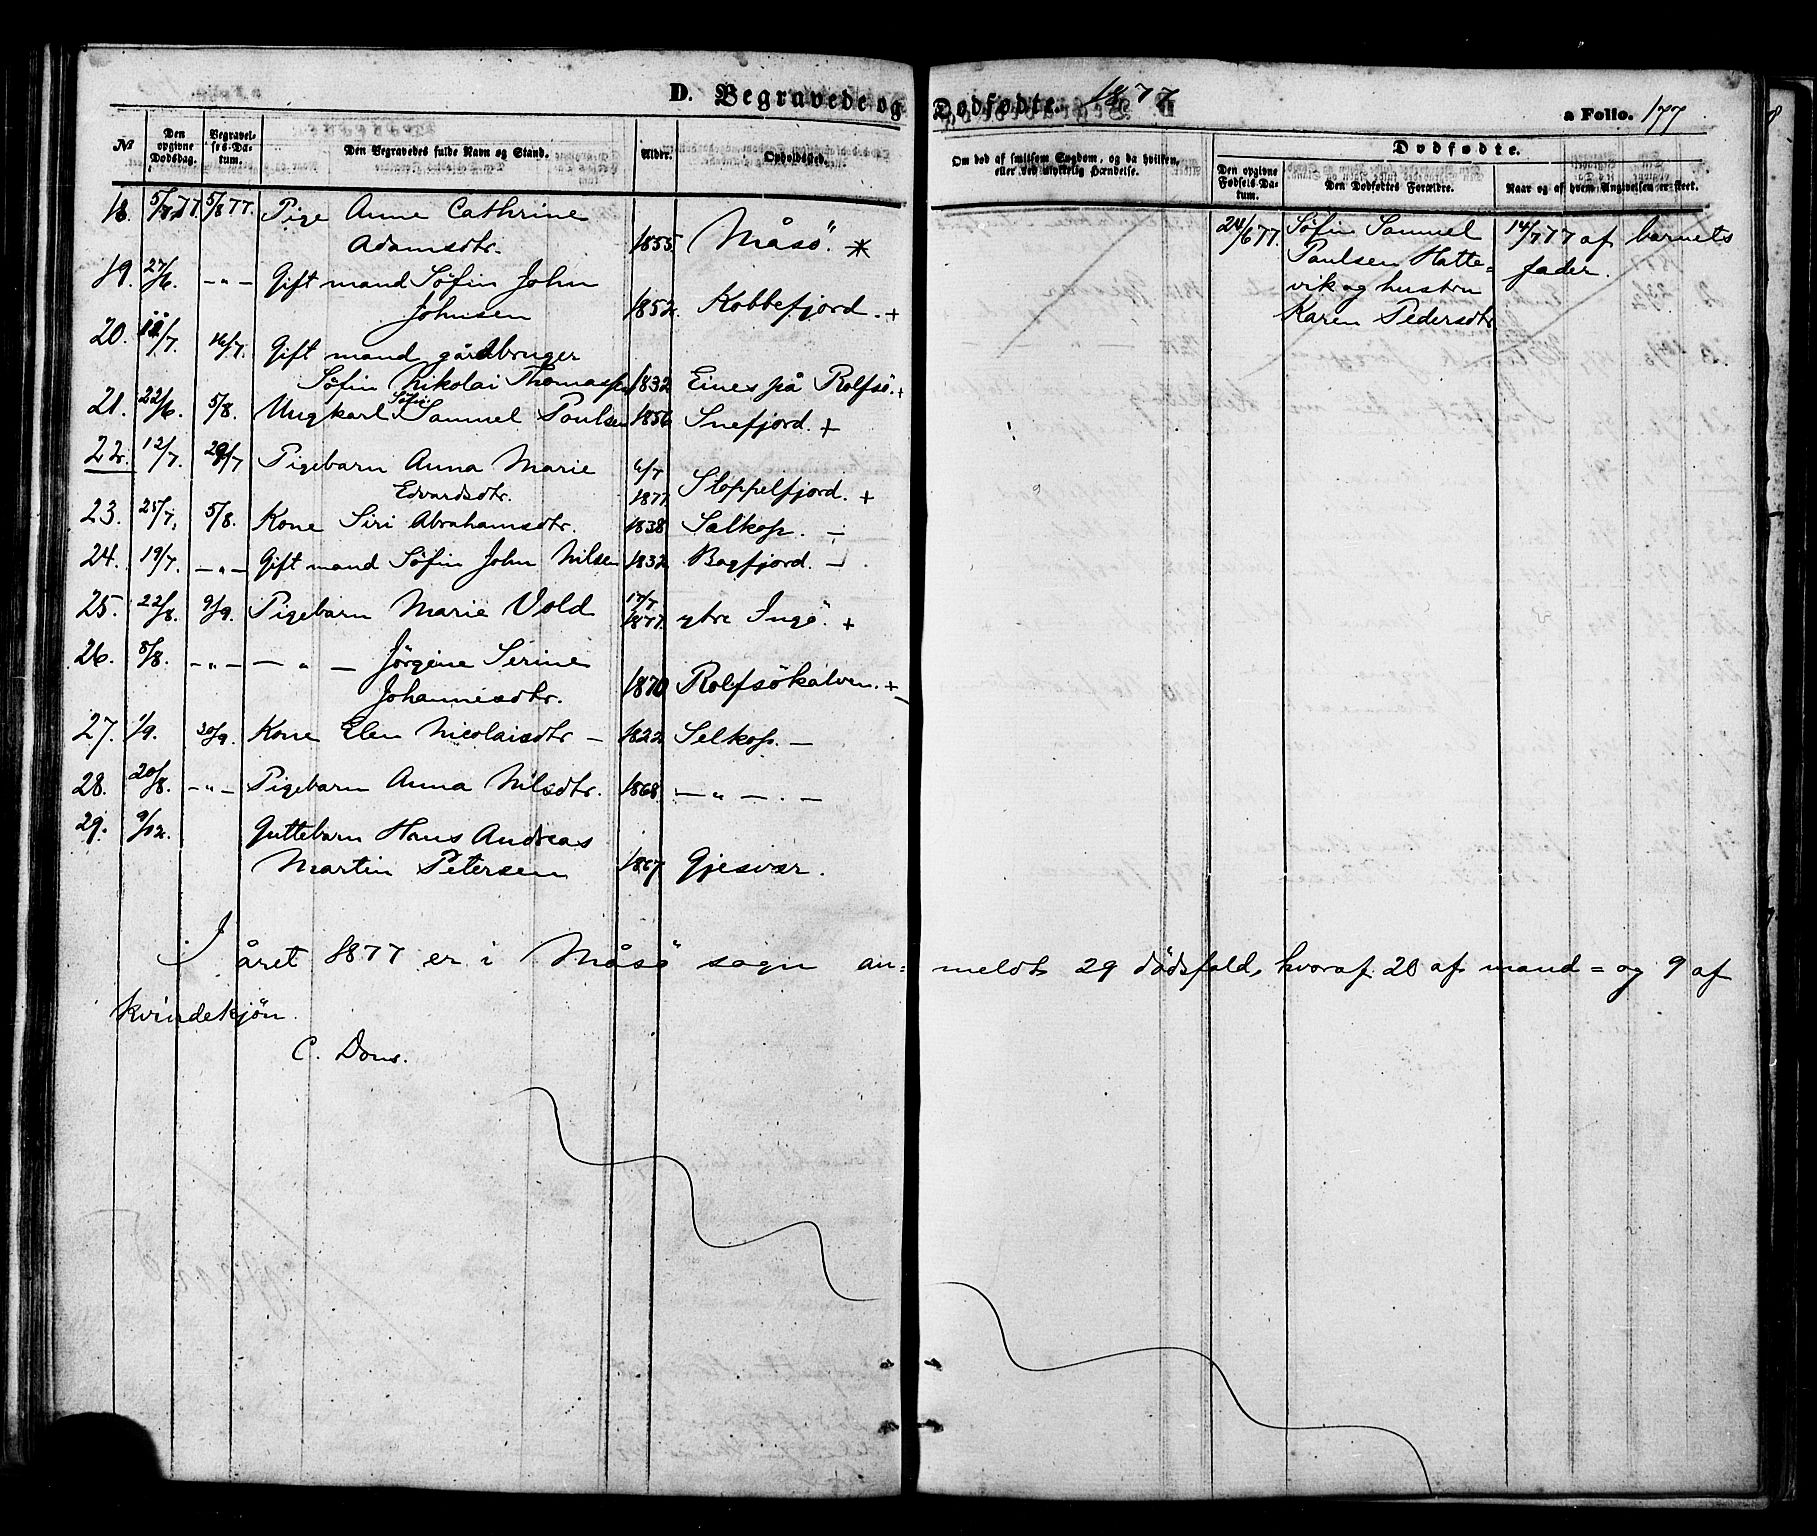 D. Begravede og Dødfødte. 1877 a Folio. 177
№ Den opgivne Dødsdag. Begravelses-Datum. Den Begravedes fulde Navn og Stand. Alder. Opholdssted. Om død af smitsom Sygdom, og da hvilken, eller ved ulykkelig Hændelse.
Dødfødte.
Den opgivne Fødsels-Datum. Den Dødfødtes Forældre. Naar og af hvem Angivelsen er skeet.
18. 5/8 77. Pige Anne Cathrine
Adamsdtr. 1855 Måsö. *
19. 27/6. — " — Gift mand Søfin John
Johnsen 1852. Kobbefjord. +
20. /7. 16/7. Gift mand gårdbruger
Søfin Nikolai Thomassen 1832 Eines på Rolfsö. +
21. 22/6 5/8. Ungkarl Søfin Samuel Paulsen 1856 Snefjord. +
22. 12/7. 29/7 Pigebarn Anna Marie
Edvardsdtr. 6/7 1877. Sloppelfjord. +
23. 25/7. 5/8. Kone Siri Abrahamsdtr. 1838 Sælkop. —
24. 19/7. — " — Gift mand Søfin John Nilsen 1832 Bagfjord. —
25. 22/8. 9/9. Pigebarn Marie Vold 17/7 1877. ytre Ingö. +
26. 8/8. — " — — " — Jörgine Serine
Johannesdtr. 1870 Rolfsökalven. +
27. 1/9. 30/9. Kone Elen Nicolaisdtr — 1822 Selkop. —
28. 20/8. — " — Pigebarn Anna Nilsdtr. 1868 — " — . —
29. 9/12. Guttebarn Hans Andreas
Martin Petersen 1867 Gjesvær.
24/6 77. Søfin Samuel 14/7 77 af barnets
Paulsen Hatte= fader.
vik og hustru
Karen Pedersdtr
I året 1877 er i Måsö sogn an= meldt 29 dødsfald, hvoraf 20 af mand= og 9 af
kvindekjön.
C. Dons.